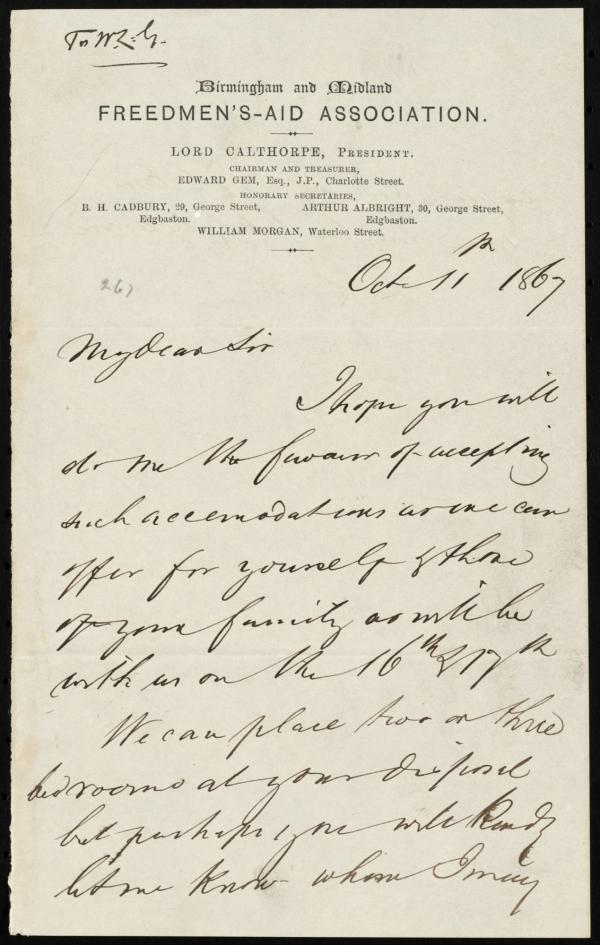 To W. L. G.
Birmingham and Midland
FREEDMEN'S-AID ASSOCIATION.
LORD CALTHORPE, PRESIDENT.
CHAIRMAN AND TREASURER,
EDWARD GEM, Esq., J.P., Charlotte Street.
HONORARY SECRETARIES,
B. H. CADBURY, 29, George Street, ARTHUR ALBRIGHT, 30, George Street,
Edgbaston. Edgbaston.
WILLIAM MORGAN, Waterloo Street.
Oct 11th 1867
267
My dear Sir
I hope you will
do me the favour of accepting
such accomodations as we can
offer for yourself & those
of your family as will be
with us on the 16th & 17th
We can place two or three
bed rooms at your disposal
but perhaps you will kindly
let me know whom I may